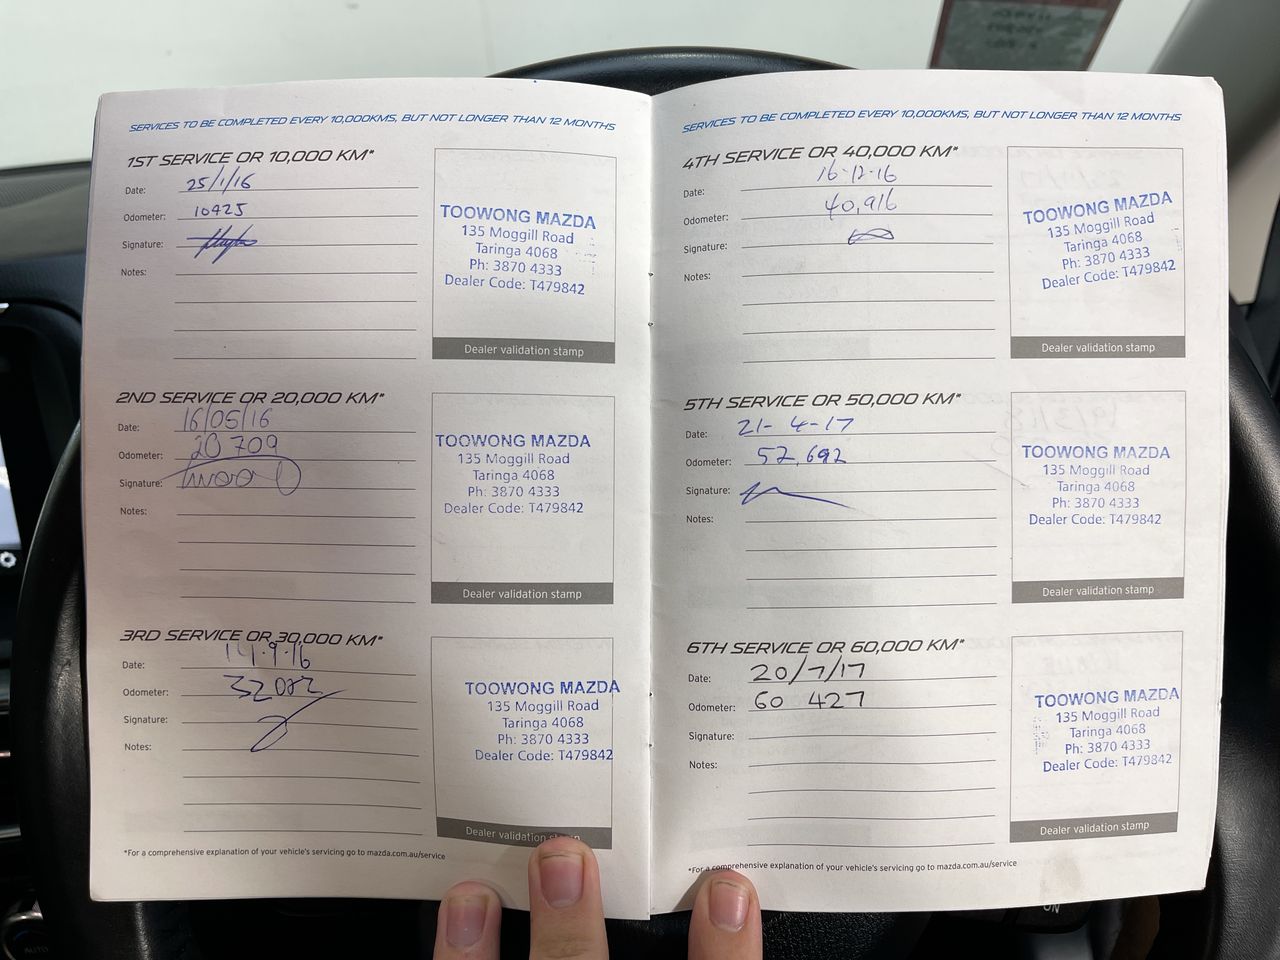 SERVICES TO BE COMPLETED EVERY 10,000KMS, BUT NOT LONGER THAN 12 MONTHS
1ST SERVICE OR 10,000 KM*
Date: 25/1/16
Odometer: 10425
Signature:
Notes:
TOOWONG MAZDA
135 Moggill Road
Taringa 4068
Ph: 3870 4333
Dealer Code: T479842
Dealer validation stamp
2ND SERVICE OR 20,000 KM*
Date: 16/05/16
Odometer: 20 709
Signature:
Notes:
TOOWONG MAZDA
135 Moggill Road
Taringa 4068
Ph: 3870 4333
Dealer Code: T479842
Dealer validation stamp
3RD SERVICE OR 30,000 KM*
Date: 14.9.16
Odometer:
Signature:
Notes:
TOOWONG MAZDA
135 Moggill Road
Taringa 4068
Ph: 3870 4333
Dealer Code: T479842
Dealer validation stamp
*For a comprehensive explanation of your vehicle's servicing go to mazda.com.au/service
SERVICES TO BE COMPLETED EVERY 10,000KMS, BUT NOT LONGER THAN 12 MONTHS
4TH SERVICE OR 40,000 KM*
Date: 16-12-16
Odometer: 40,916
Signature:
Notes:
TOOWONG MAZDA
135 Moggill Road
Taringa 4068
Ph: 3870 4333
Dealer Code: T479842
Dealer validation stamp
5TH SERVICE OR 50,000 KM*
Date: 21-4-17
Odometer: 52,692
Signature:
Notes:
TOOWONG MAZDA
135 Moggill Road
Taringa 4068
Ph: 3870 4333
Dealer Code: T479842
Dealer validation stamp
6TH SERVICE OR 60,000 KM*
Date: 20/7/17
Odometer: 60 427
Signature:
Notes:
TOOWONG MAZDA
135 Moggill Road
Taringa 4068
Ph: 3870 4333
Dealer Code: T479842
Dealer validation stamp
*For a comprehensive explanation of your vehicle's servicing go to mazda.com.au/service
AUTO
ON